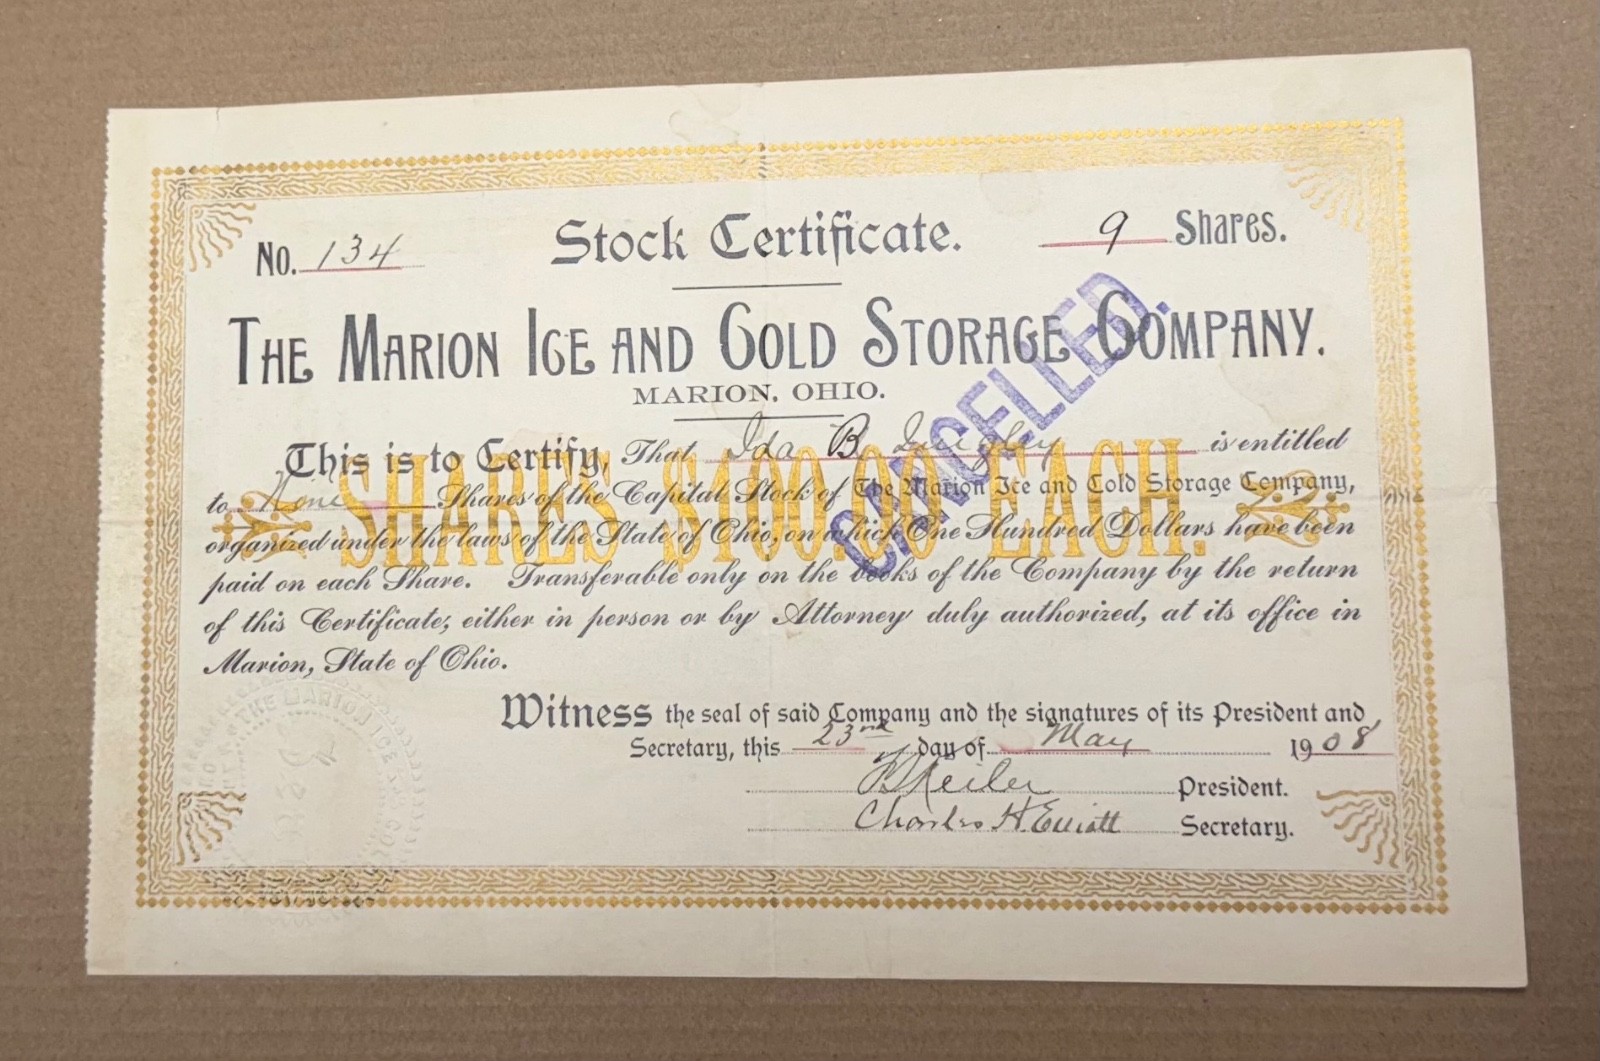 No. 134
Stock Certificate.
9 Shares.
THE MARION ICE AND COLD STORAGE COMPANY.
MARION, OHIO.
CANCELLED.
This is to Certify, That Ida B
is entitled
to Nine Shares of the Capital Stock of The Marion Ice and Cold Storage Company,
SHARES $100.00 EACH.
organized under the laws of the State of Ohio, on which One Hundred Dollars have been
paid on each Share. Transferable only on the books of the Company by the return
of this Certificate, either in person or by Attorney duly authorized, at its office in
Marion, State of Ohio.
Witness the seal of said Company and the signatures of its President and
Secretary, this 23rd day of May 1908
President.
Charles H. Elliott Secretary.
THE MARION ICE AND COLD